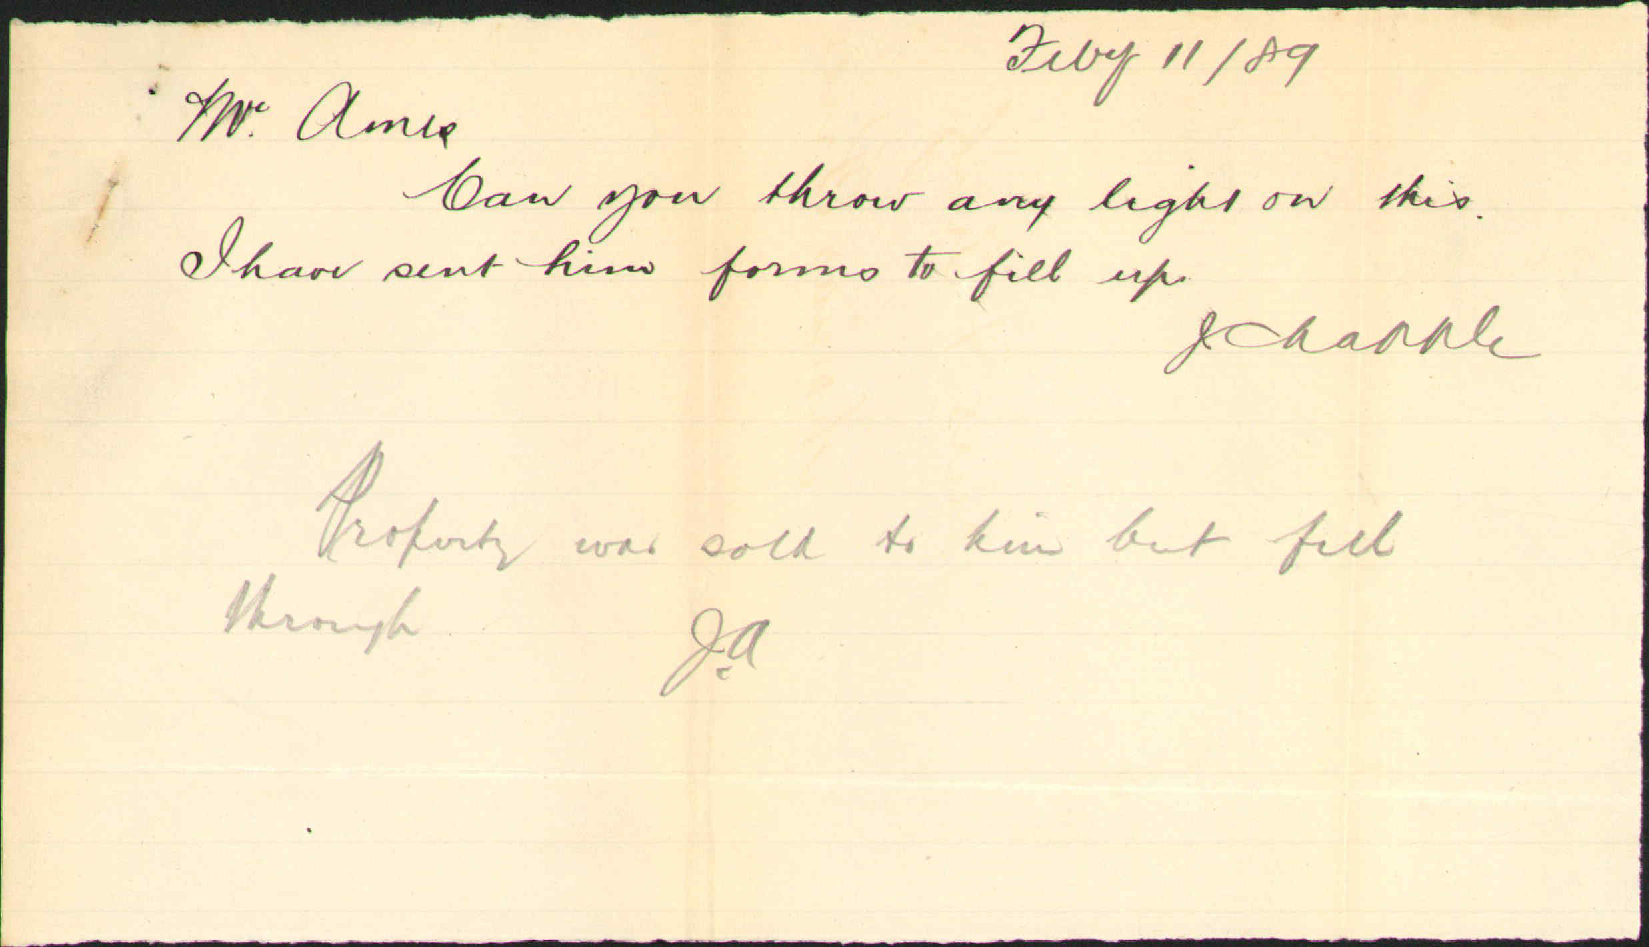 Feby 11/89
Mr. Ames
Can you throw any light on this.
I have sent him forms to fill up.
J Chapple
Property was sold to him but fell
through
J.A